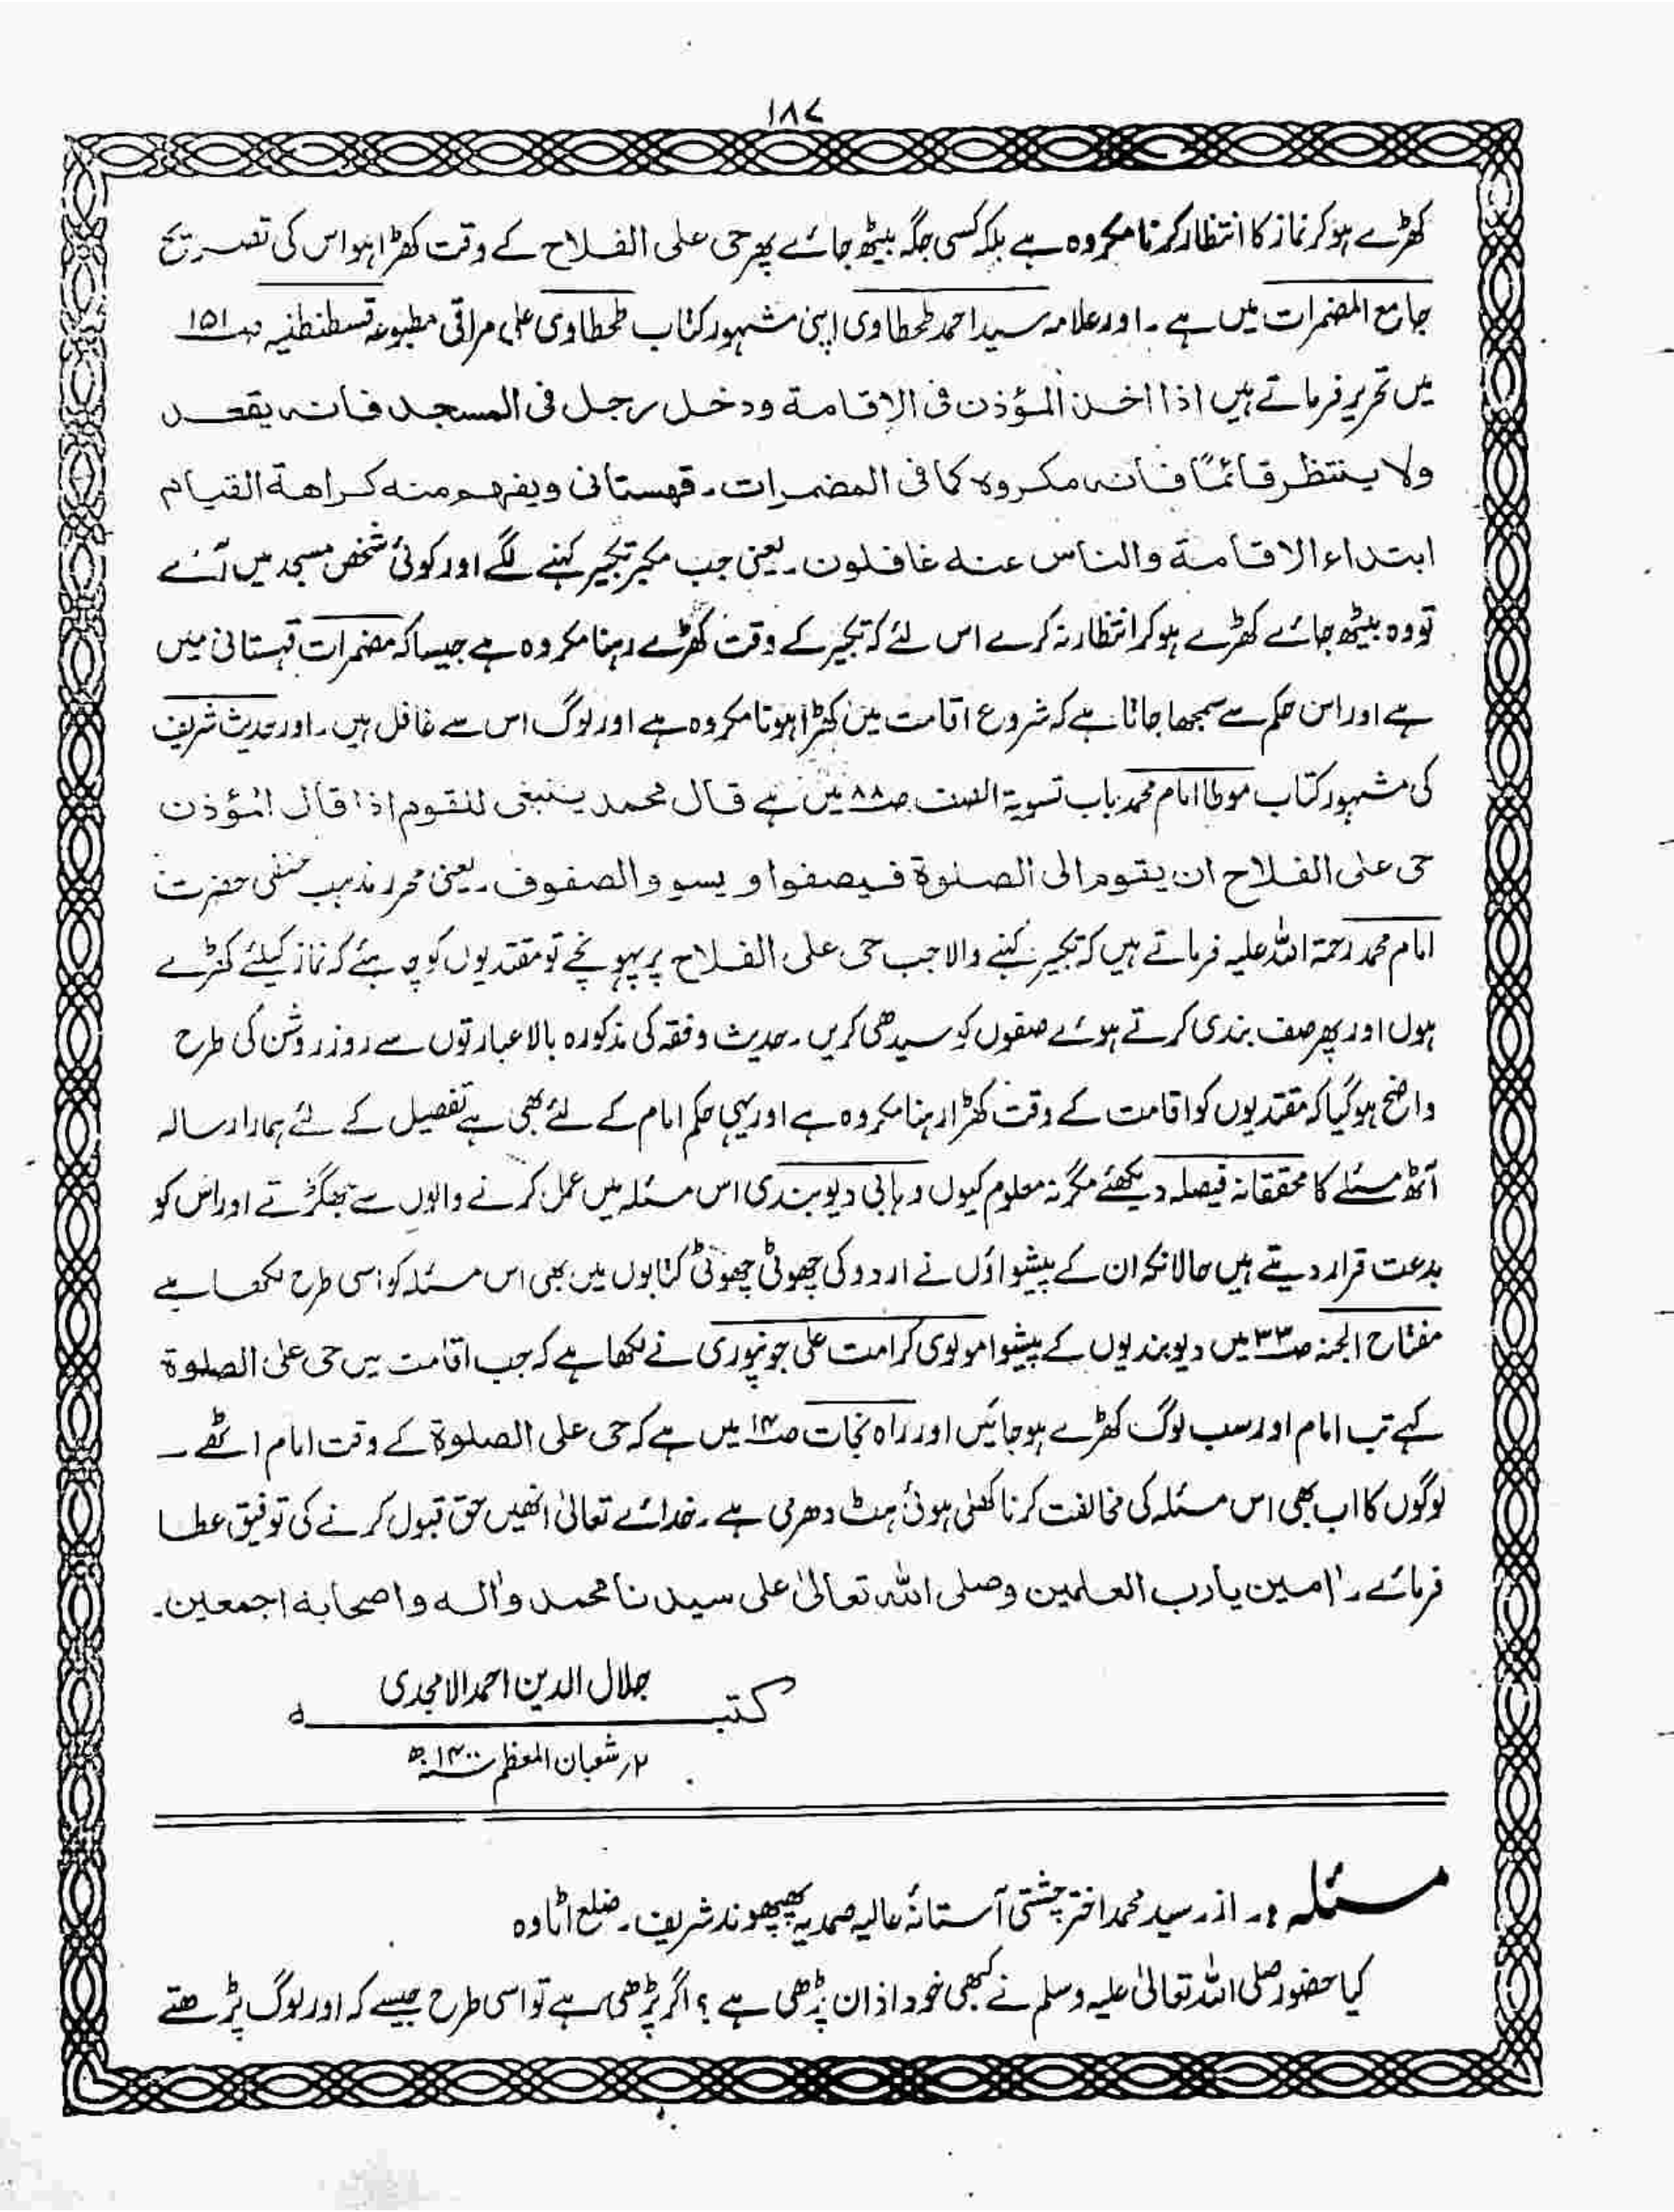 ۱۸۷
کھڑے ہوکر نماز کا انتظار کرنا مکروہ ہے بلکہ کسی جگہ بیٹھ جائے پھر حی علی الفلاح کے وقت کھڑا ہو اس کی تصریح
جامع المضمرات میں ہے ۔ اور علامہ سید احمد طحطاوی اپنی مشہور کتاب طحطاوی علی مراقی مطبوعہ قسطنطنیہ صـ۱۵۱
میں تحریر فرماتے ہیں اذا اخذ المؤذن فی الاقامة ودخل رجل فی المسجد فانہ یقعد
ولا ینتظر قائمًا فانہ مکروہ کما فی المضمرات ۔ قهستانی ویفهم منه کراهة القیام
ابتداء الاقامة والناس عنه غافلون ۔ یعنی جب مکبر تکبیر کہنے لگے اور کوئی شخص مسجد میں آئے
تو وہ بیٹھ جائے کھڑے ہوکر انتظار نہ کرے اس لئے کہ تکبیر کے وقت کھڑے رہنا مکروہ ہے جیسا کہ مضمرات قہستانی میں
ہے اور اس حکم سے سمجھا جاتا ہے کہ شروع اقامت میں کھڑا ہونا مکروہ ہے اور لوگ اس سے غافل ہیں ۔ اور حدیث شریف
کی مشہور کتاب موطا امام محمد باب تسویۃ الصف صـ۸۸ میں ہے قال محمد ینبغی للقوم اذا قال المؤذن
حی علی الفلاح ان یقوم الی الصلوة فیصفوا و یسو والصفوف ۔ یعنی محرر مذہب حنفی حضرت
امام محمد رحمۃ اللہ علیہ فرماتے ہیں کہ تکبیر کہنے والا جب حی علی الفلاح پر پہونچے تو مقتدیوں کو چاہئے کہ نماز کیلئے کھڑے
ہوں اور پھر صف بندی کرتے ہوئے صفوں کو سیدھی کریں ۔ حدیث وفقہ کی مذکورہ بالا عبارتوں سے روز روشن کی طرح
واضح ہوگیا کہ مقتدیوں کو اقامت کے وقت کھڑا رہنا مکروہ ہے اور یہی حکم امام کے لئے بھی ہے تفصیل کے لئے ہمارا رسالہ
آٹھ مسئلے کا محققانہ فیصلہ دیکھئے مگر نہ معلوم کیوں وہابی دیوبندی اس مسئلہ میں عمل کرنے والوں سے جھگڑتے اور اس کو
بدعت قرار دیتے ہیں حالانکہ ان کے پیشواؤں نے اردو کی چھوٹی چھوٹی کتابوں میں بھی اس مسئلہ کو اسی طرح لکھا ہے
مفتاح الجنہ صـ۳۳ میں دیوبندیوں کے پیشوا مولوی کرامت علی جونپوری نے لکھا ہے کہ جب اقامت میں حی علی الصلوة
کہے تب امام اور سب لوگ کھڑے ہوجائیں اور راہ نجات صـ۱۴ میں ہے کہ حی علی الصلوة کے وقت امام اٹھے ۔
لوگوں کا اب بھی اس مسئلہ کی مخالفت کرنا کھلی ہوئی ہٹ دھرمی ہے ۔ خدائے تعالیٰ انھیں حق قبول کرنے کی توفیق عطا
فرمائے ۔ اٰمین یا رب العلمین وصلی اللہ تعالیٰ علی سیدنا محمد واٰلہ واصحابہ اجمعین ۔
جلال الدین احمد الامجدی
کتبـــــہ
۲؍ شعبان المعظم ۱۴۰۰ھ
مسئلہ :۔ از ۔ سید محمد اختر چشتی آستانۂ عالیہ صمدیہ پھپھوند شریف ۔ ضلع اٹاوہ
کیا حضور صلی اللہ تعالیٰ علیہ وسلم نے کبھی خود اذان پڑھی ہے ؟ اگر پڑھی ہے تو اسی طرح جیسے کہ اور لوگ پڑھتے